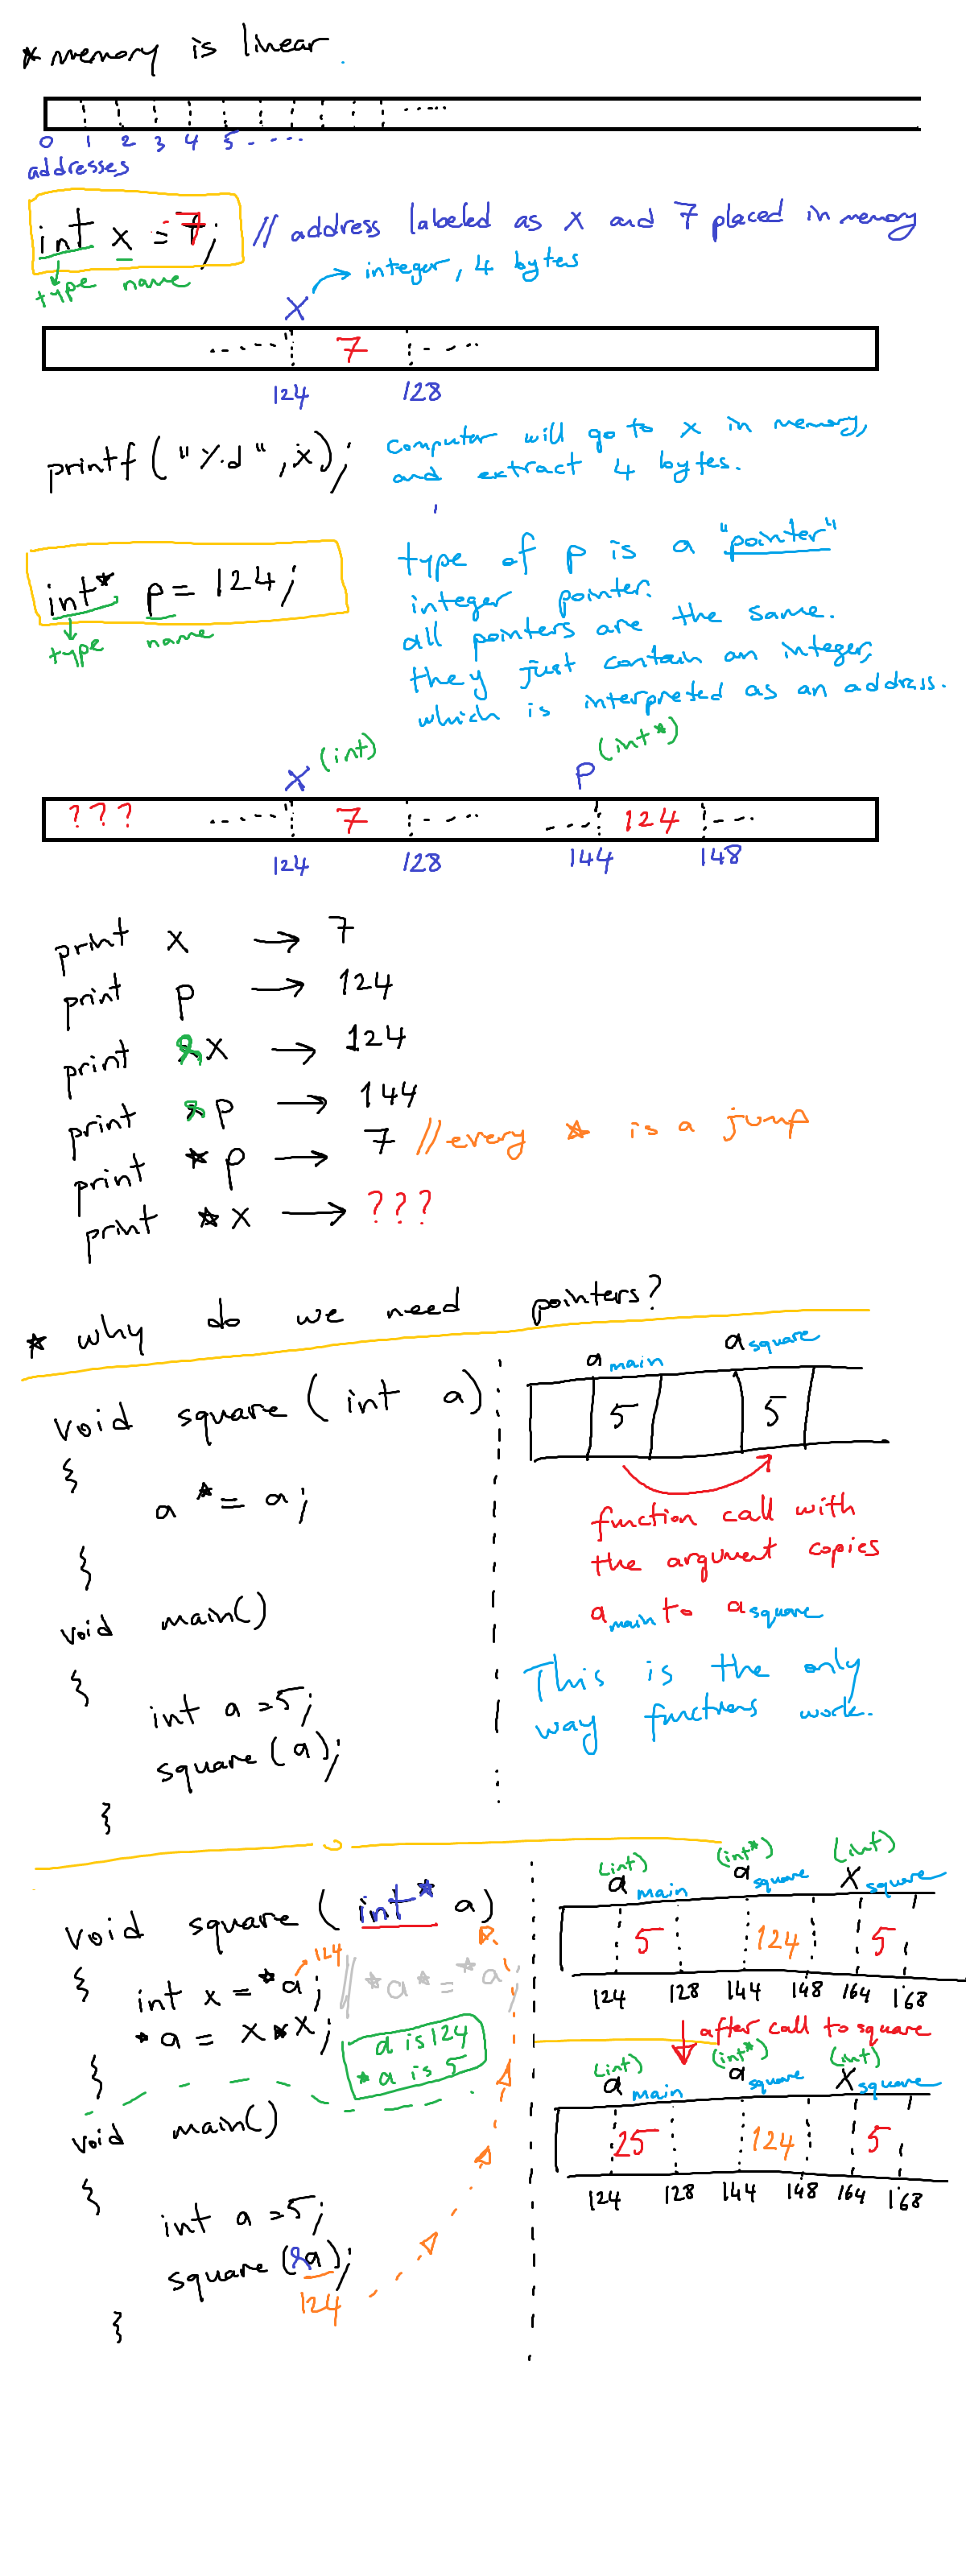 * memory is linear.
0 1 2 3 4 5 - ....
addresses
int x = 7; // address labeled as x and 7 placed in memory
type name
x → integer, 4 bytes
7
124 128
printf("%d", x); computer will go to x in memory,
and extract 4 bytes.
int* p = 124; type of p is a "pointer"
type name
integer pointer.
all pointers are the same.
they just contain an integer,
which is interpreted as an address.
x (int) p (int*)
??? 7 124
124 128 144 148
print x → 7
print p → 124
print &x → 124
print &p → 144
print *p → 7 // every * is a jump
print *x → ???
* why do we need pointers?
void square(int a)
{
a *= a;
}
void main()
{
int a = 5;
square(a);
}
a main a square
5 5
function call with
the argument copies
a main to a square
This is the only
way functions work.
void square(int* a)
{
int x = *a; 124 // *a *= *a;
*a = x * x;
a is 124
*a is 5
}
void main()
{
int a = 5;
square(&a);
124
}
(int) (int*) (int)
a main a square x square
5 124 5
124 128 144 148 164 168
after call to square
(int) (int*) (int)
a main a square x square
25 124 5
124 128 144 148 164 168